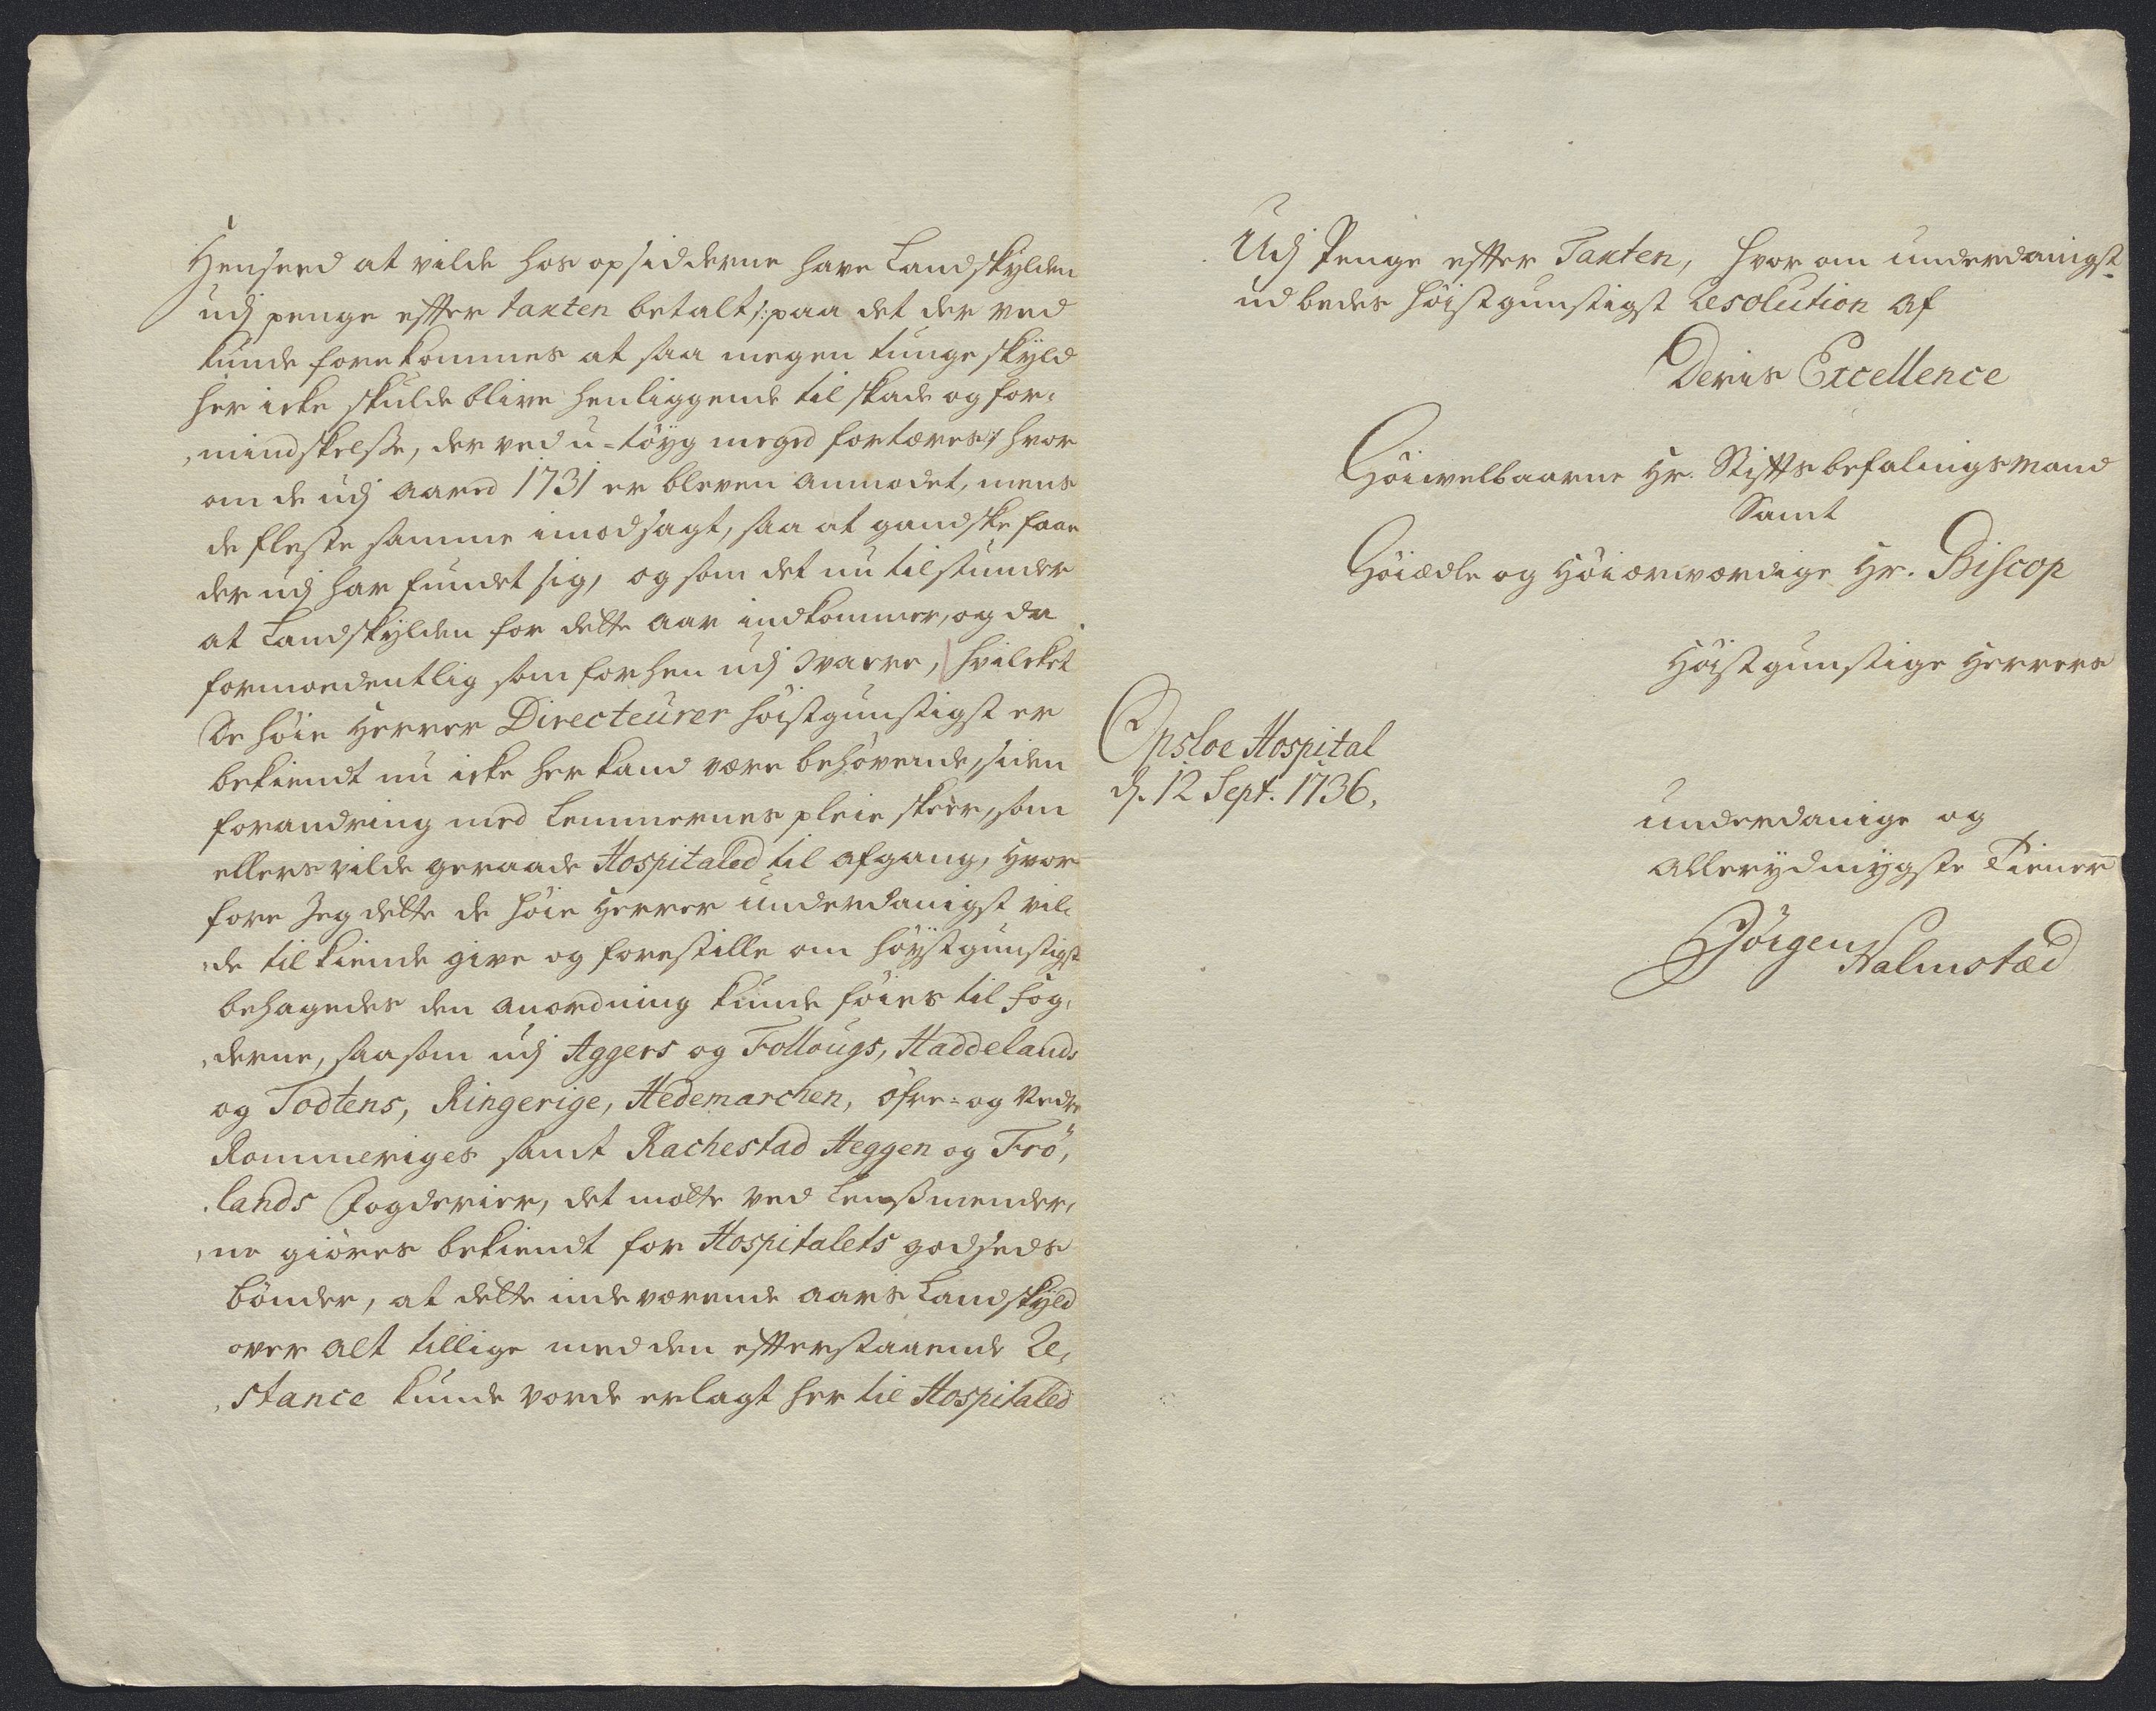 Henseed at vilde hos opsidderne have Landskylden
udj penge effter taxten betalt /: paa det der ved
kunde forekommes at saa megen tunge skyld
her icke skulde blive henliggende til skade og for,
,mindskelsse, der ved u=töyg meged fortæres :/ hvor
om de udj Aared 1731 er bleven anmodet, mens
de fleste samme imodsagt, saa at gandske faae
der udj har fundet sig, og som det nu tilstunder
at Landskylden for dette Aar indkommer, og da
formoedentlig som forhen udj Waere, hvilcket
De höie Herrer Directeurer höistgunstigst er
bekiendt nu icke her kand være behövende, siden
forandring med Lemmernes pleie skeer, som
ellers vilde geraade Hospitaled til afgang, Hvor
fore Jeg dette de höie Herrer underdanigst vil,
,de tilkiende give og forestille om höystgunstigst
behagedes den anordning kunde föies til Fog,
,derne, saasom udj Aggers og Follougs, Haddelands
og Todtens, Ringerige, Hedemarchen, öfre= og Nedre
Rommeriges samt Rachestad Heggen og Frö,
,lands Fogderier, det motte ved Lenssmender,
,ne giöres bekiendt for Hospitalets godseds
bönder, at dette indeværende aars Landskyld
over alt tillige med den effterstaaende Re,
,stance kunde vorde erlagt her til Hospitaled
Udj Penge effter Taxten, hvor om underdanigst
udbedes höistgunstigst Resolution af
Deris Excellence
Höiwelbaarne Hr. Stiftsbefalingsmand
Samt
Höiædle og Höiærværdige Hr. Biscop
Höistgunstige Herrers
Opsloe Hospital
d. 12 Sept. 1736.
underdanige og
Allerydmygste Tiener
Jörgen Halmstæd